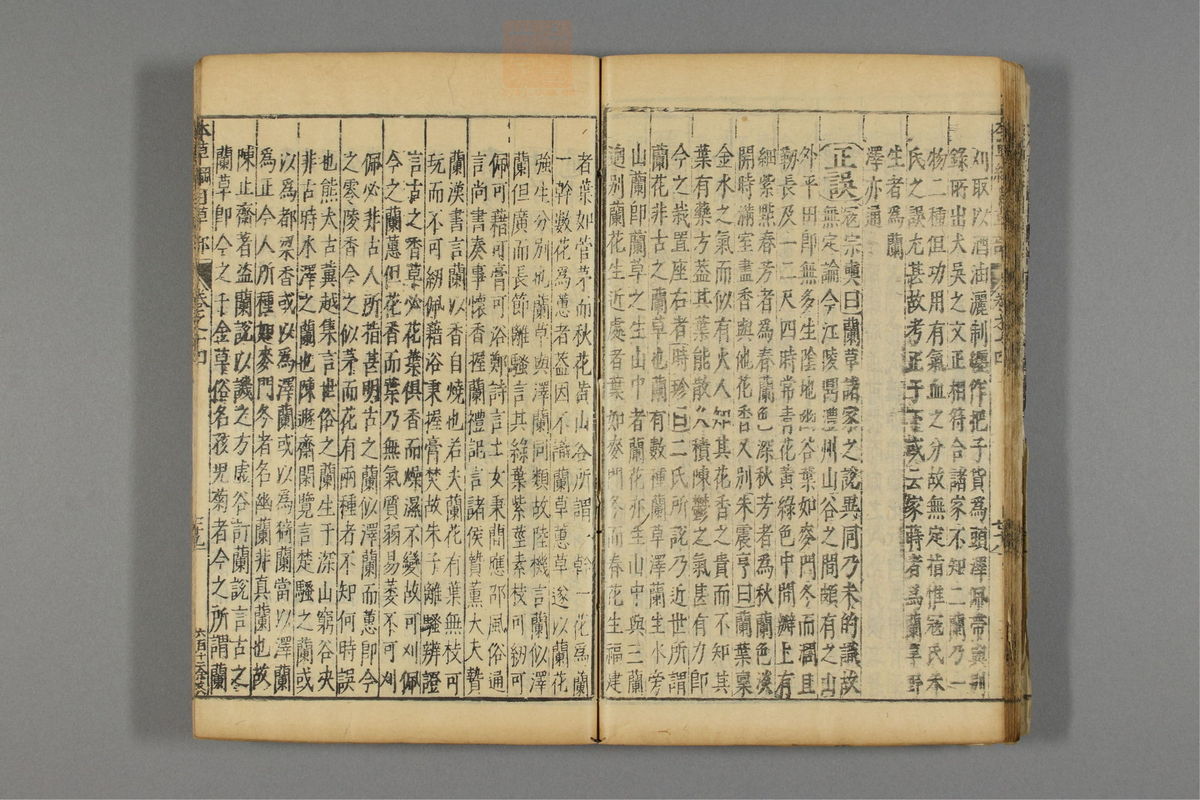 刈取以酒油灑制纏作把子貨為頭澤佩帶與別
錄所出大吳之文正相符合諸家不知二蘭乃一
物二種但功用有氣血之分故無定指惟寇氏朱
氏之誤尤甚故考正于下或云家蒔者為蘭草野
生者為蘭
澤亦通
正誤寇宗奭曰蘭草諸家之說異同乃未的識故
無定論今江陵鼎澧州山谷之間頗有之山
外平田即無多生陰地幽谷葉如麥門冬而闊且
韌長及一二尺四時常青花黃綠色中間瓣上有
細紫點春芳者為春蘭色深秋芳者為秋蘭色淡
開時滿室盡香與他花香又別朱震亨曰蘭葉稟
金水之氣而似有火人知其花香之貴而不知其
葉有藥方蓋其葉能散久積陳鬱之氣甚有力即
今之栽置座右者時珍曰二氏所說乃近世所謂
蘭花非古之蘭草也蘭有數種蘭草澤蘭生水旁
山蘭即蘭草之生山中者蘭花亦生山中與三蘭
迥別蘭花生近處者葉如麥門冬而春花生福建
者葉如菅茅而秋花黃山谷所謂一幹一花為蘭
一幹數花為蕙者蓋因不識蘭草蕙草遂以蘭花
強生分別也蘭草與澤蘭同類故陸機言蘭似澤
蘭但廣而長節離騷言其綠葉紫莖素枝可紉可
佩可藉可膏可浴鄭詩言士女秉蕑應邵風俗通
言尚書奏事懷香握蘭禮記言諸侯贄薰大夫贄
蘭漢書言蘭以香自燒也若夫蘭花有葉無枝可
玩而不可紉佩藉浴秉握膏焚故朱子離騷辨證
言古之香草必花葉俱香而燥濕不變故可刈佩
今之蘭蕙但花香而葉乃無氣質弱易萎不可刈
佩必非古人所指甚明古之蘭似澤蘭而蕙即今
之零陵香今之似茅而花有兩種者不知何時誤
也熊太古冀越集言世俗之蘭生于深山窮谷决
非古時水澤之蘭也陳遯齋閑覽言楚騷之蘭或
以為都梁香或以為澤蘭或以為猗蘭當以澤蘭
為正今人所種如麥門冬者名幽蘭非真蘭也故
陳止齋著盜蘭說以譏之方虛谷訂蘭說言古之
蘭草即今之千金草俗名孩兒菊者今之所謂蘭
本草綱目草部
卷之十四